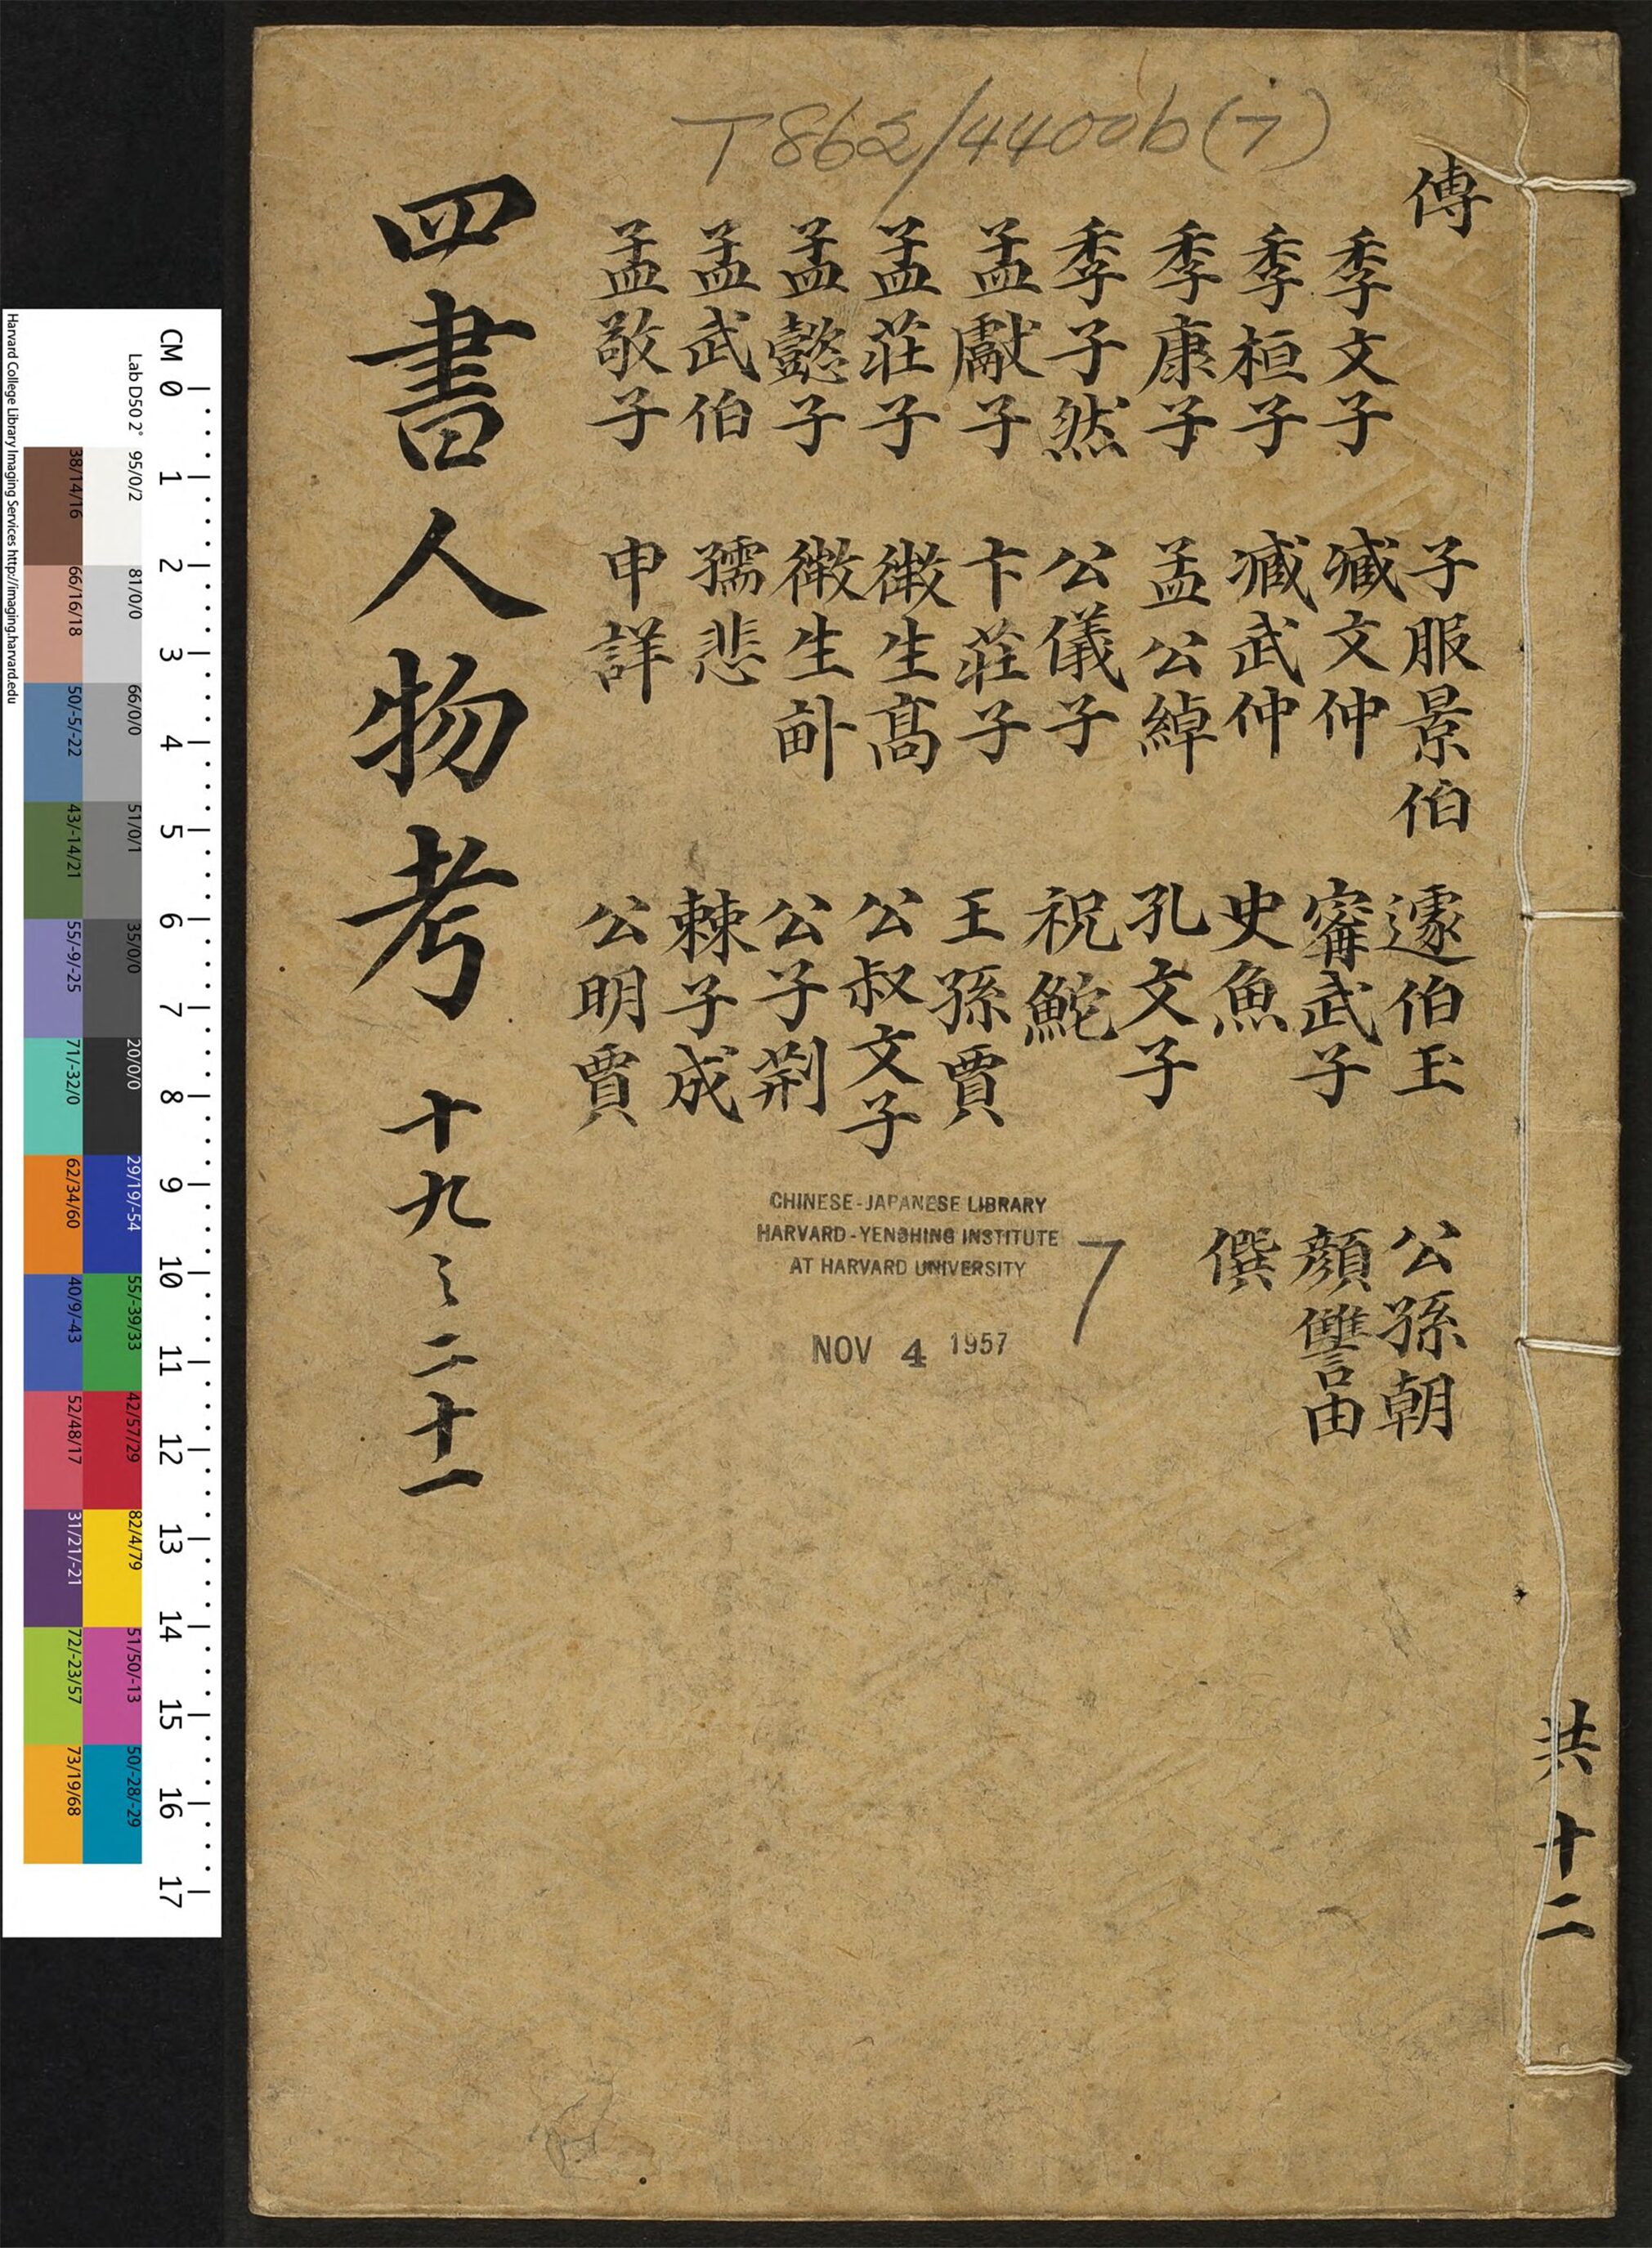 T862/4400b(7)
傳
季文子
季桓子
季康子
季子然
孟獻子
孟莊子
孟懿子
孟武伯
孟敬子
子服景伯
臧文仲
臧武仲
孟公綽
公儀子
卞莊子
微生高
微生畝
孺悲
申詳
蘧伯玉
甯武子
史魚
孔文子
祝鮀
王孫賈
公叔文子
公子荆
棘子成
公明賈
公孫朝
顏讐由
僎
四書人物考 十九之二十一
共十二
CHINESE-JAPANESE LIBRARY
HARVARD-YENCHING INSTITUTE
AT HARVARD UNIVERSITY
7
NOV 4 1957
CM 0 1 2 3 4 5 6 7 8 9 10 11 12 13 14 15 16 17
Lab D50 2° 95/0/2 81/0/0 66/0/0 51/0/1 35/0/0 20/0/0 29/19/-54 55/-39/33 42/57/29 82/4/79 51/50/-13 50/-28/-29
38/14/16 66/16/18 50/-5/-22 43/-14/21 55/-9/-25 71/-32/0 62/34/60 40/9/-43 52/48/17 31/21/-21 72/-23/57 73/19/68
Harvard College Library Imaging Services http://imaging.harvard.edu